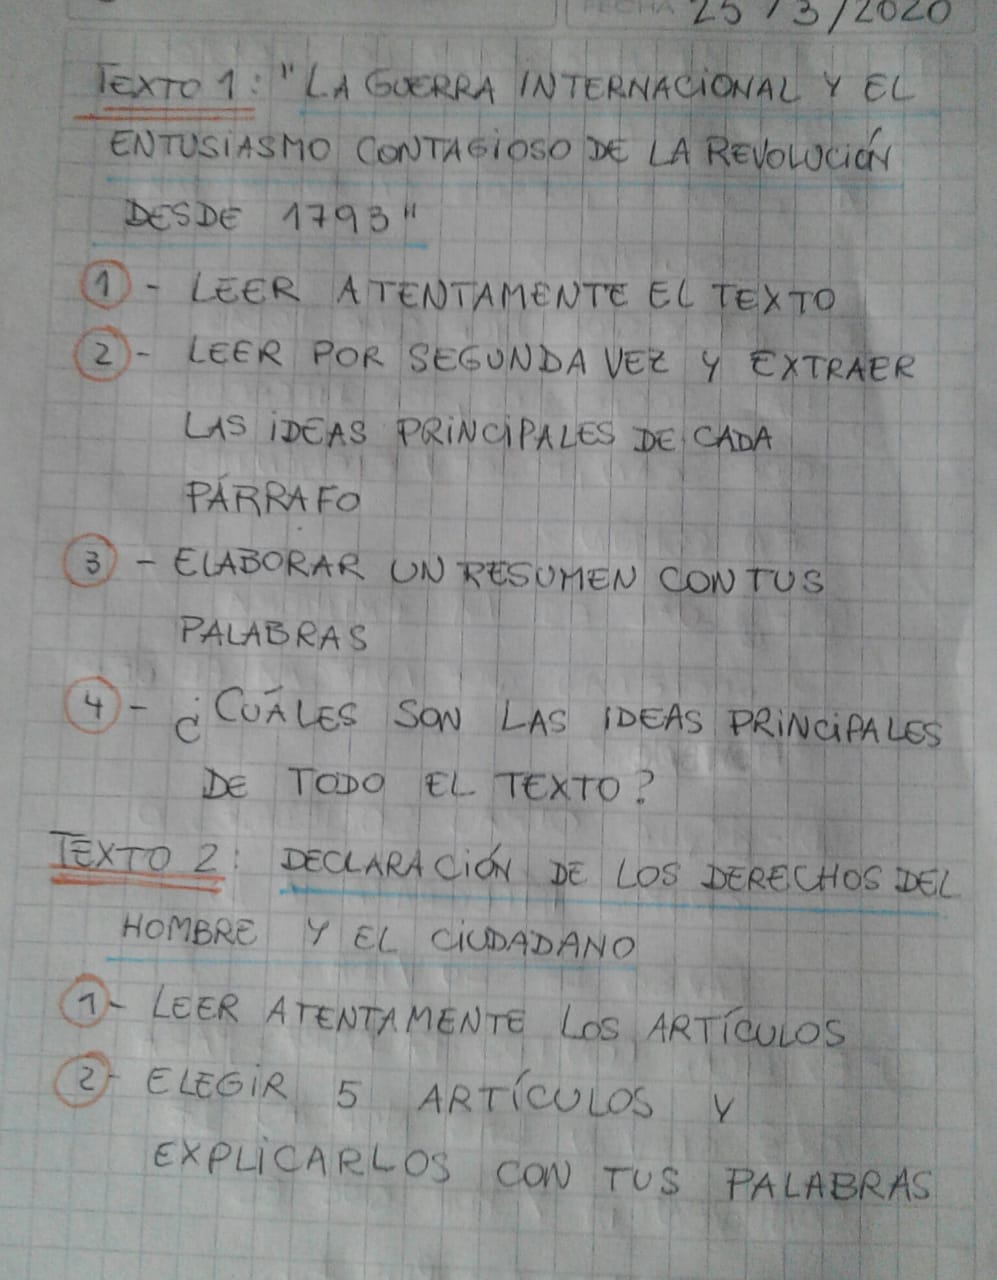 FECHA 25/3/2020
TEXTO 1: "LA GUERRA INTERNACIONAL Y EL
ENTUSIASMO CONTAGIOSO DE LA REVOLUCIÓN
DESDE 1793"
1- LEER ATENTAMENTE EL TEXTO
2- LEER POR SEGUNDA VEZ Y EXTRAER
LAS IDEAS PRINCIPALES DE CADA
PÁRRAFO
3- ELABORAR UN RESUMEN CON TUS
PALABRAS
4- ¿CUÁLES SON LAS IDEAS PRINCIPALES
DE TODO EL TEXTO?
TEXTO 2: DECLARACIÓN DE LOS DERECHOS DEL
HOMBRE Y EL CIUDADANO
1- LEER ATENTAMENTE LOS ARTÍCULOS
2- ELEGIR 5 ARTÍCULOS Y
EXPLICARLOS CON TUS PALABRAS